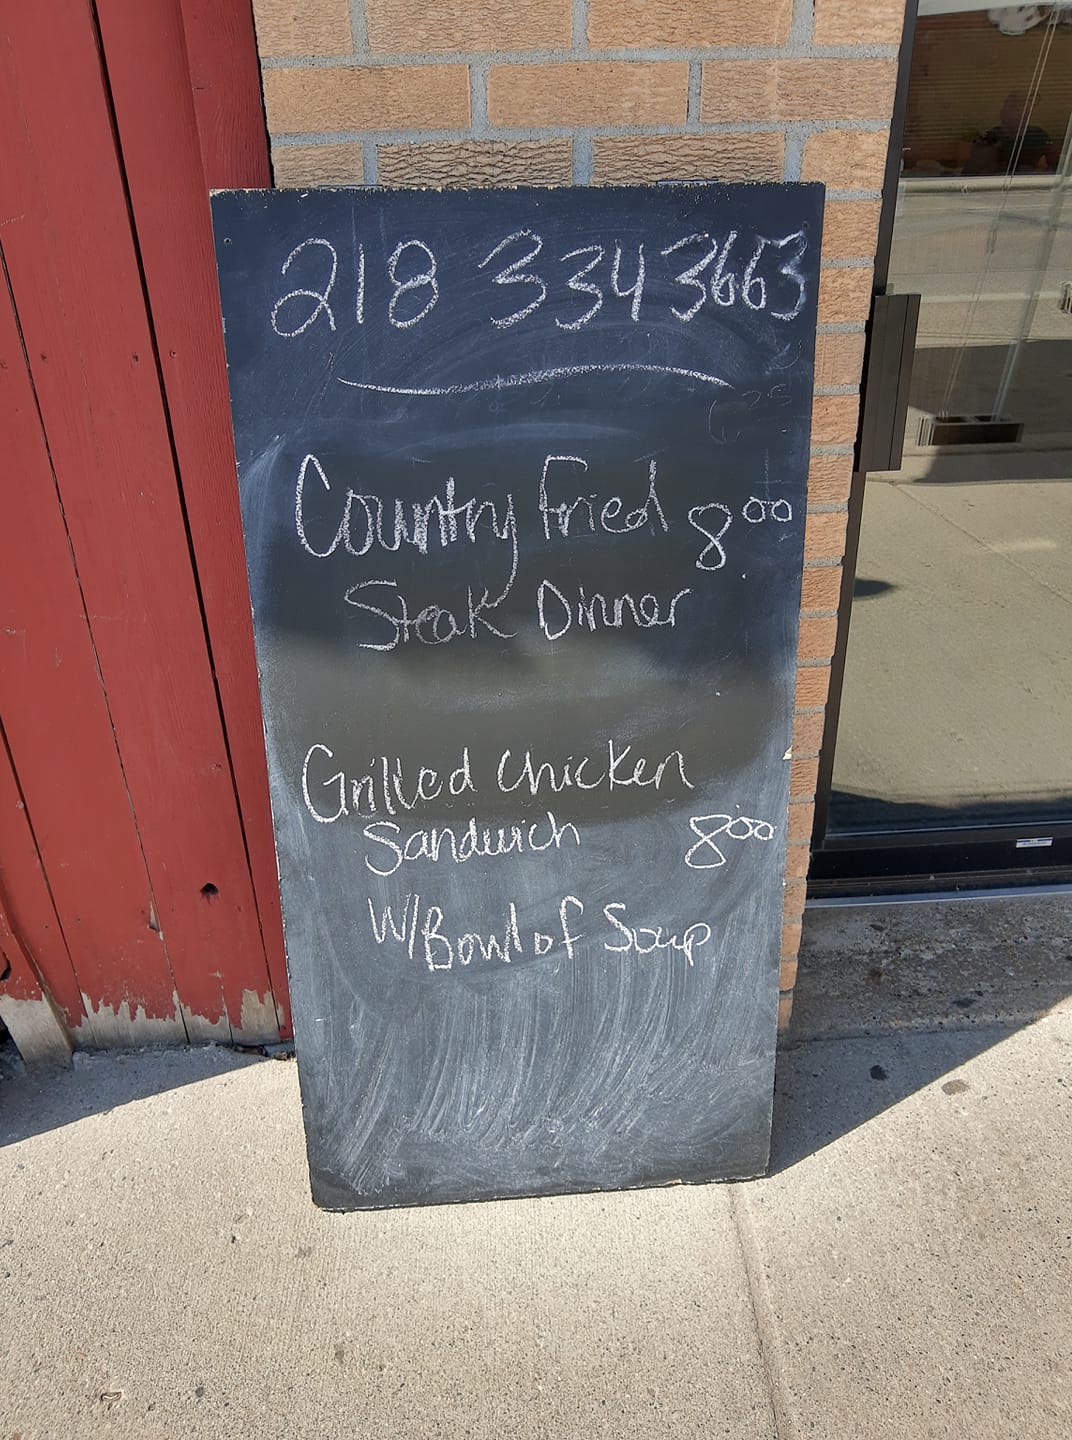 218 334 3663
Country Fried 8.00
Steak Dinner
Grilled Chicken
Sandwich 8.00
W/Bowl of Soup